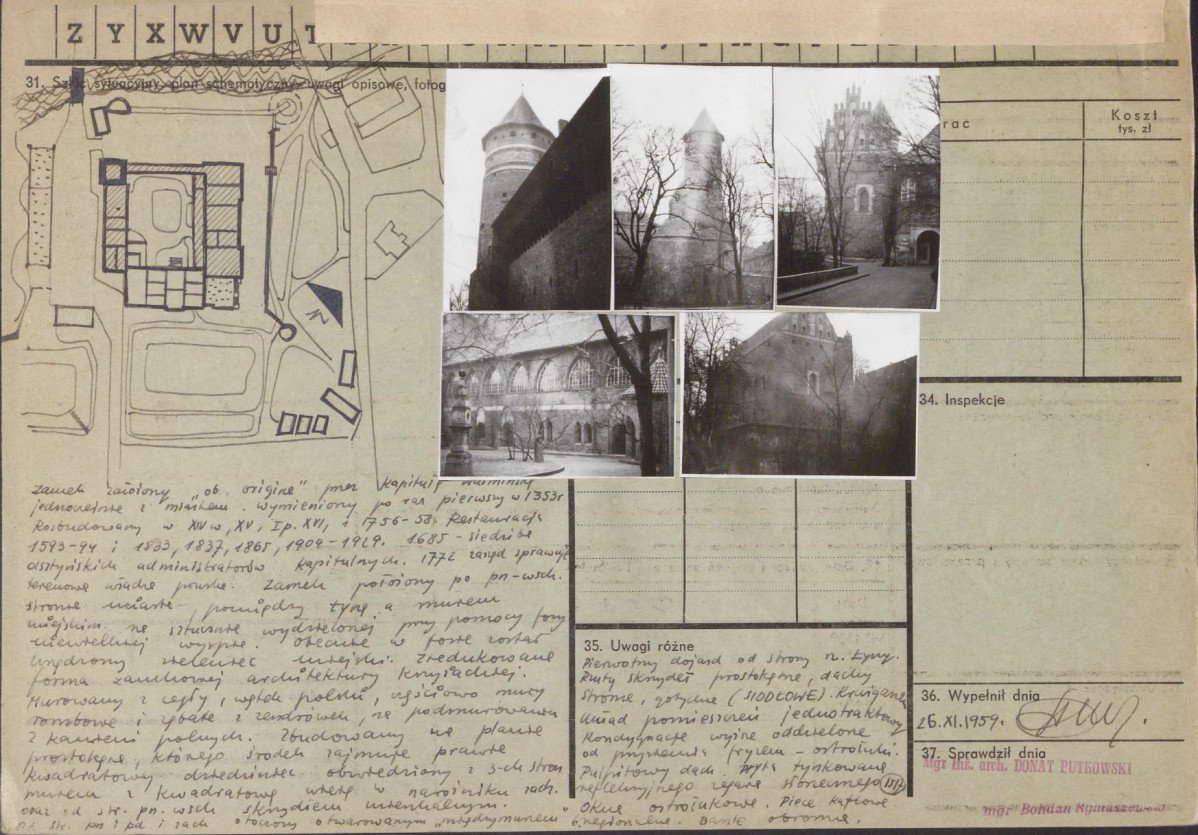 Z Y X W V U T
31. Szkic sytuacyjny, plan schematyczny, uwagi opisowe, fotog
rac
Koszt
tys. zł
N
34. Inspekcje
Zamek założony „ob. origine" przez kapitułę warmińską
jednocześnie z miastem. Wymieniony po raz pierwszy w 1353r
Rozbudowany w XIV w, XV, I p. XVI, i 1756-58. Restauracja
1593-94 i 1833, 1837, 1865, 1909-1929. 1685 - siedziba
olsztyńskich administratorów kapitulnych. 1772 zarząd sprawuje
terenowe władze pruskie. Zamek położony po pn-wsch.
stronie miasta, pomiędzy Łyną a murem
miejskim na sztucznie wydzielonej przy pomocy fosy
niewielkiej wyspie. Obecnie w fosie został
urządzony zieleniec miejski. Zredukowana
forma zamkowej architektury krzyżackiej.
Murowany z cegły, wątek polski, częściowo mury
rombowe i z zendrówek, na podmurowaniu
z kamieni polnych. Zbudowany na planie
prostokąta, którego środek zajmuje prawie
kwadratowy dziedziniec obwiedziony z 3-ch stron
murem z kwadratową wieżą w narożniku zach.
oraz od str. pn. wsch skrzydłem mieszkalnym.
str. pn i pd i zach otoczony otwarowanym „międzymurzem"
35. Uwagi różne
Pierwotny dojazd od strony rz. Łyny.
Rzuty skrzydeł prostokątne, dachy
strome, gotyckie (SIODŁOWE). Krużganek
Układ pomieszczeń jednotraktowy
Kondygnacje wyżne oddzielone
od przyziemia fryzem - ostrołuki.
Pulpitowy dach. Płyta tynkowana
refleksyjnego zegara słonecznego (1517)
Okna ostrołukowe. Piece kaflowe
regionalne. obronne.
36. Wypełnił dnia
26.XI.1959.
37. Sprawdził dnia
mgr inż. arch. DONAT PUTKOWSKI
mgr Bohdan Rymaszewski